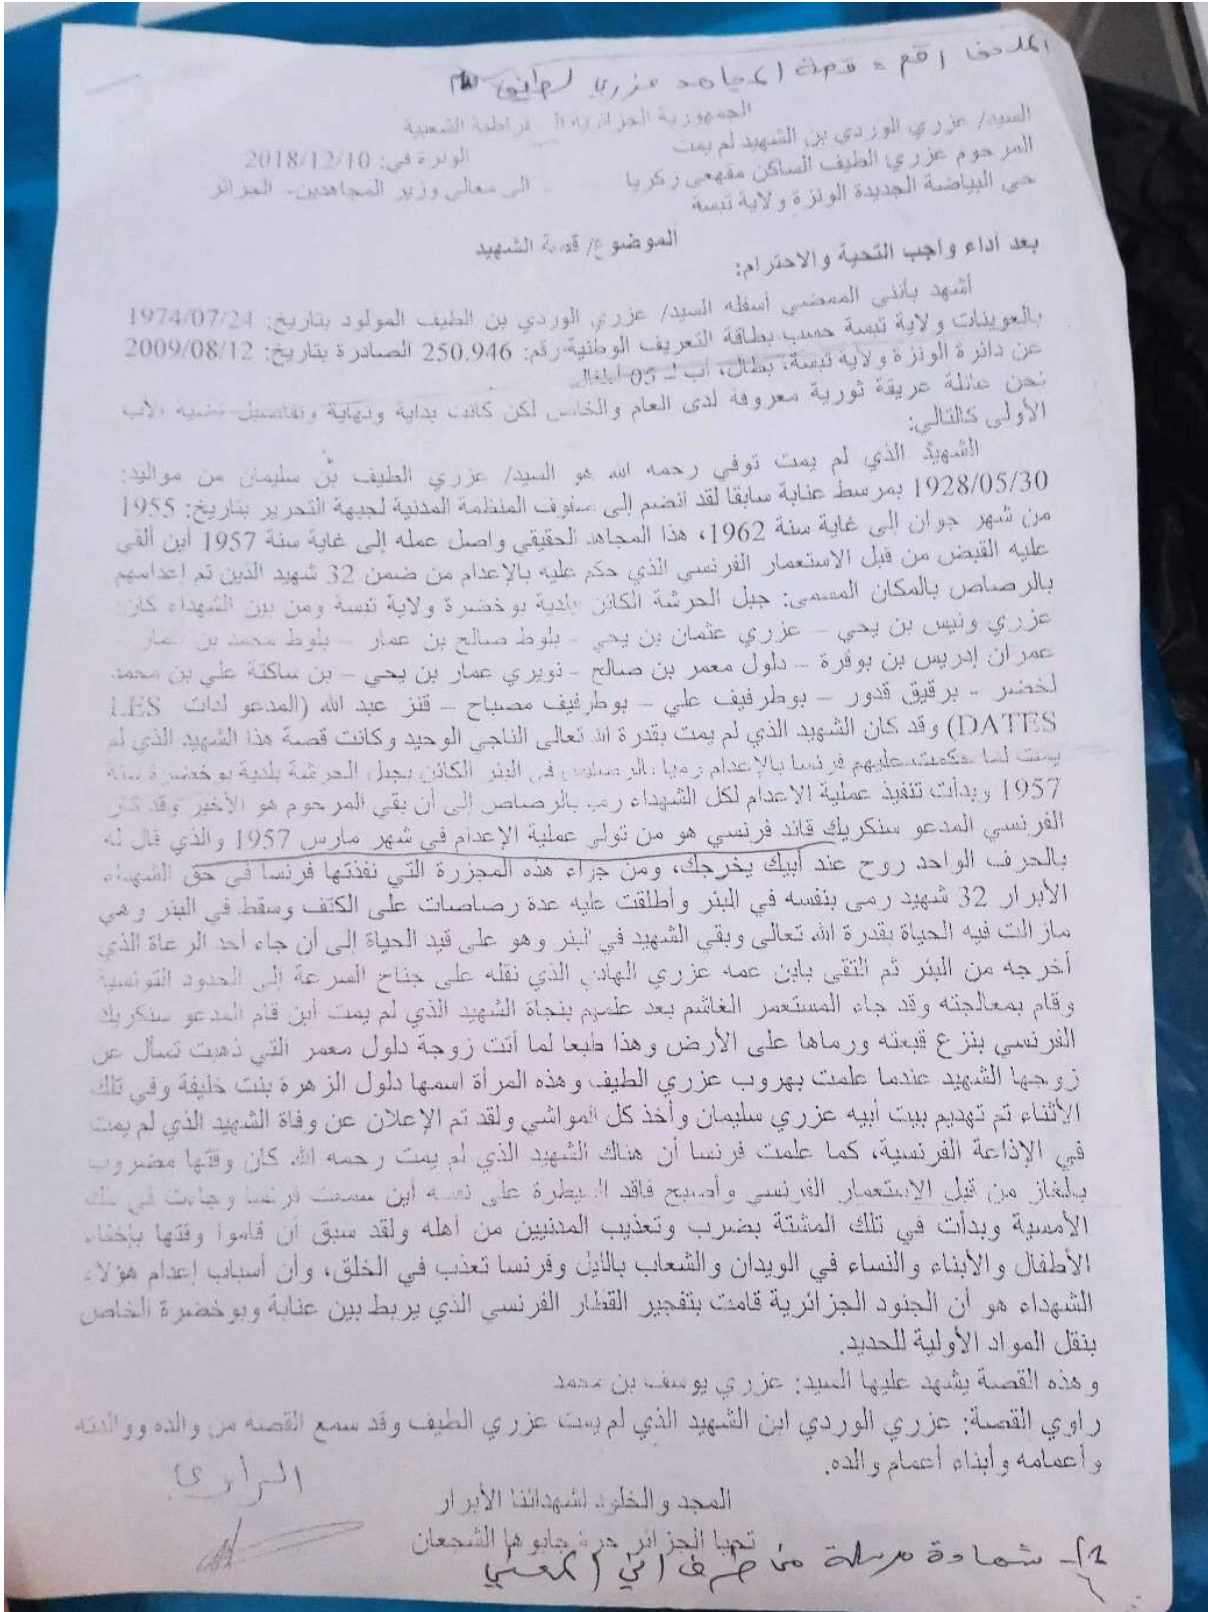 الملحق رقم : قصة المجاهد عزري لطيف
الجمهورية الجزائرية الشعبية
السيد/ عزري الوردي بن الشهيد لم يمت
الونزة في: 2018/12/10
المرحوم عزري الطيف الساكن مقهمي زكريا
الى معالي وزير المجاهدين- الجزائر
حي البياضة الجديدة الونزة ولاية تبسة
الموضوع/ قصة الشهيد
بعد أداء واجب التحية والاحترام:
أشهد بأنني الممضي أسفله السيد/ عزري الوردي بن الطيف المولود بتاريخ: 1974/07/24
بالعوينات ولاية تبسة حسب بطاقة التعريف الوطنية رقم: 250.946 الصادرة بتاريخ: 2009/08/12
عن دائرة الونزة ولاية تبسة، بطال، أب لـ 05 أطفال.
نحن عائلة عريقة ثورية معروفة لدى العام والخاص لكن كانت بداية ونهاية وتفاصيل قضية الأب
الأولى كالتالي:
الشهيد الذي لم يمت توفي رحمه الله هو السيد/ عزري الطيف بن سليمان من مواليد:
1928/05/30 بمرسط عنابة سابقا لقد انضم إلى صفوف المنظمة المدنية لجبهة التحرير بتاريخ: 1955
من شهر جوان إلى غاية سنة 1962، هذا المجاهد الحقيقي واصل عمله إلى غاية سنة 1957 أين ألقي
عليه القبض من قبل الاستعمار الفرنسي الذي حكم عليه بالإعدام من ضمن 32 شهيد الذين تم اعدامهم
بالرصاص بالمكان المسمى: جبل الحرشة الكائن ببلدية بوخضرة ولاية تبسة ومن بين الشهداء كان:
عزري ونيس بن يحي – عزري عثمان بن يحي - بلوط صالح بن عمار – بلوط محمد بن عمار
عمران إدريس بن بوقرة – دلول معمر بن صالح - نويري عمار بن يحي – بن ساكتة علي بن محمد
لخضر - برقيق قدور – بوطرفيف علي – بوطرفيف مصباح – قنز عبد الله (المدعو لدات LES
DATES) وقد كان الشهيد الذي لم يمت بقدرة الله تعالى الناجي الوحيد وكانت قصة هذا الشهيد الذي لم
يمت لما حكمت عليهم فرنسا بالإعدام رميا بالرصاص في البئر الكائن بجبل الحرشة بلدية بوخضرة سنة
1957 وبدأت تنفيذ عملية الاعدام لكل الشهداء رميا بالرصاص إلى أن بقي المرحوم هو الأخير وقد كان
الفرنسي المدعو سنكريك قائد فرنسي هو من تولى عملية الإعدام في شهر مارس 1957 والذي قال له
بالحرف الواحد روح عند أبيك يخرجك، ومن جراء هذه المجزرة التي نفذتها فرنسا في حق الشهداء
الأبرار 32 شهيد رمى بنفسه في البئر وأطلقت عليه عدة رصاصات على الكتف وسقط في البئر وهي
مازالت فيه الحياة بقدرة الله تعالى وبقي الشهيد في البئر وهو على قيد الحياة إلى أن جاء أحد الرعاة الذي
أخرجه من البئر ثم التقى بابن عمه عزري الهادي الذي نقله على جناح السرعة إلى الحدود التونسية
وقام بمعالجته وقد جاء المستعمر الغاشم بعد علمهم بنجاة الشهيد الذي لم يمت أين قام المدعو سنكريك
الفرنسي بنزع قبعته ورماها على الأرض وهذا طبعا لما أتت زوجة دلول معمر التي ذهبت تسأل عن
زوجها الشهيد عندما علمت بهروب عزري الطيف وهذه المرأة اسمها دلول الزهرة بنت خليفة وفي تلك
الأثناء تم تهديم بيت أبيه عزري سليمان وأخذ كل المواشي ولقد تم الإعلان عن وفاة الشهيد الذي لم يمت
في الإذاعة الفرنسية، كما علمت فرنسا أن هناك الشهيد الذي لم يمت رحمه الله كان وقتها مضروب
بالغاز من قبل الإستعمار الفرنسي وأصبح فاقد السيطرة على نفسه أين سمعت فرنسا وجاءت في تلك
الأمسية وبدأت في تلك المشتة بضرب وتعذيب المدنيين من أهله ولقد سبق أن قاموا وقتها بإخفاء
الأطفال والأبناء والنساء في الويدان والشعاب بالليل وفرنسا تعذب في الخلق، وأن أسباب إعدام هؤلاء
الشهداء هو أن الجنود الجزائرية قامت بتفجير القطار الفرنسي الذي يربط بين عنابة وبوخضرة الخاص
بنقل المواد الأولية للحديد.
وهذه القصة يشهد عليها السيد: عزري يوسف بن محمد
راوي القصة: عزري الوردي ابن الشهيد الذي لم يمت عزري الطيف وقد سمع القصة من والده ووالدته
وأعمامه وأبناء أعمام والده.
الراوي
المجد والخلود لشهدائنا الأبرار
تحيا الجزائر حرة جابوها الشجعان
شهادة مرسلة من طرف